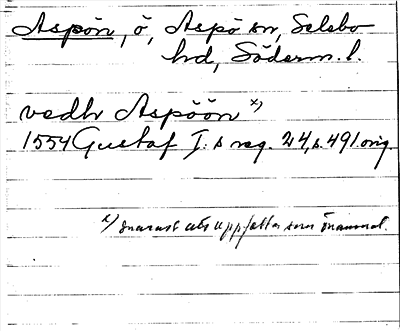 Aspön, ö, Aspö sn, Selebo
hd, Söderm. l.
vedh Aspöön x)
1554 Gustaf I:s reg. 24, s. 491 orig.
x) snarast att uppfatta som önamnet.